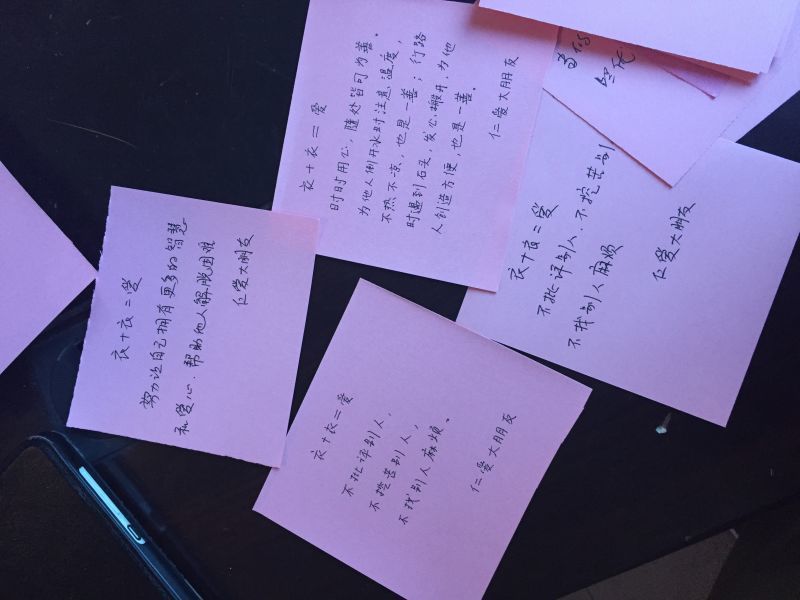 衣+衣=爱
努力让自己拥有更多的智慧
和爱心.帮助他人解脱困难
仁爱大朋友
衣+衣=爱
时时用心,随处皆可为善。
为他人倒开水时注意温度,
不热不凉,也是一善;行路
时遇到石头,发心搬开,为他
人创造方便,也是一善。
仁爱大朋友
衣+衣=爱
不批评别人.不挖苦别
不找别人麻烦
仁爱大朋友
衣+衣=爱
不批评别人,
不挖苦别人,
不找别人麻烦。
仁爱大朋友